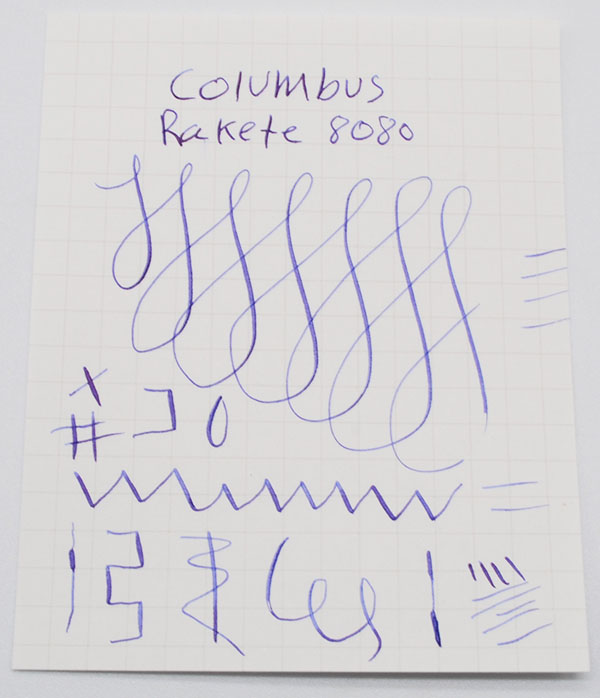 Columbus
Rakete 8080